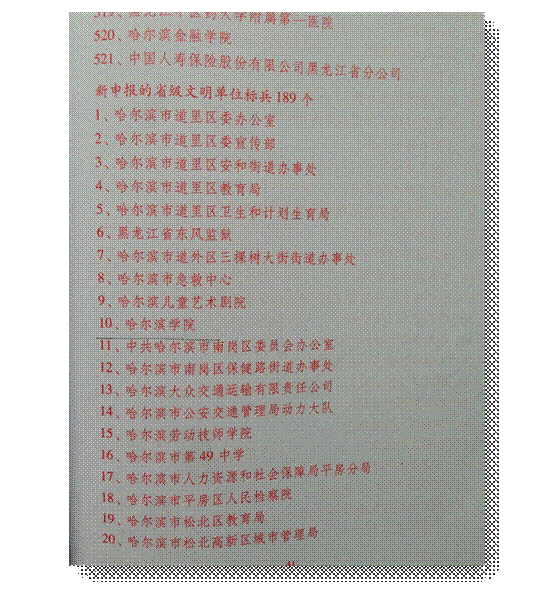 519、黑龙江中医药大学附属第一医院
520、哈尔滨金融学院
521、中国人寿保险股份有限公司黑龙江省分公司
新申报的省级文明单位标兵 189 个
1、哈尔滨市道里区委办公室
2、哈尔滨市道里区委宣传部
3、哈尔滨市道里区安和街道办事处
4、哈尔滨市道里区教育局
5、哈尔滨市道里区卫生和计划生育局
6、黑龙江省东风监狱
7、哈尔滨市道外区三棵树大街街道办事处
8、哈尔滨市急救中心
9、哈尔滨儿童艺术剧院
10、哈尔滨学院
11、中共哈尔滨市南岗区委员会办公室
12、哈尔滨市南岗区保健路街道办事处
13、哈尔滨大众交通运输有限责任公司
14、哈尔滨市公安交通管理局动力大队
15、哈尔滨劳动技师学院
16、哈尔滨市第 49 中学
17、哈尔滨市人力资源和社会保障局平房分局
18、哈尔滨市平房区人民检察院
19、哈尔滨市松北区教育局
20、哈尔滨市松北高新区城市管理局